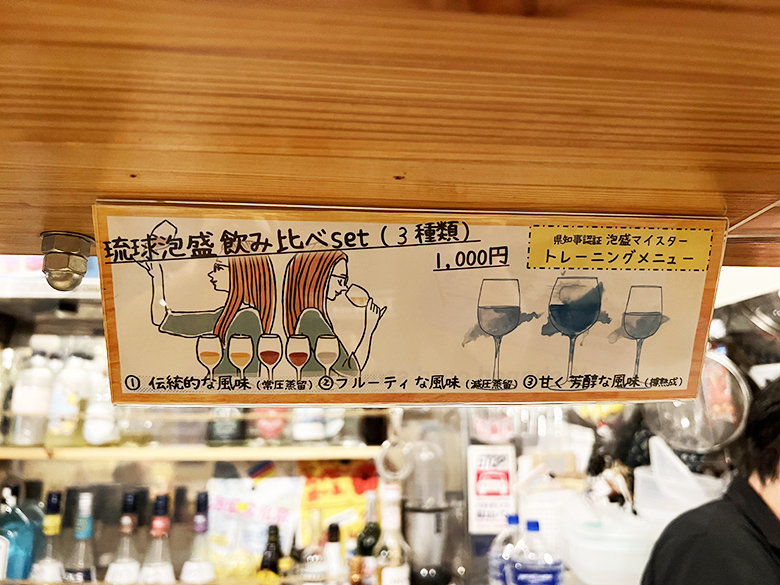 琉球泡盛 飲み比べset（3種類）
1,000円
県知事認証 泡盛マイスター
トレーニングメニュー
① 伝統的な風味（常圧蒸留）② フルーティな風味（減圧蒸留）③ 甘く芳醇な風味（樽熟成）
STOP